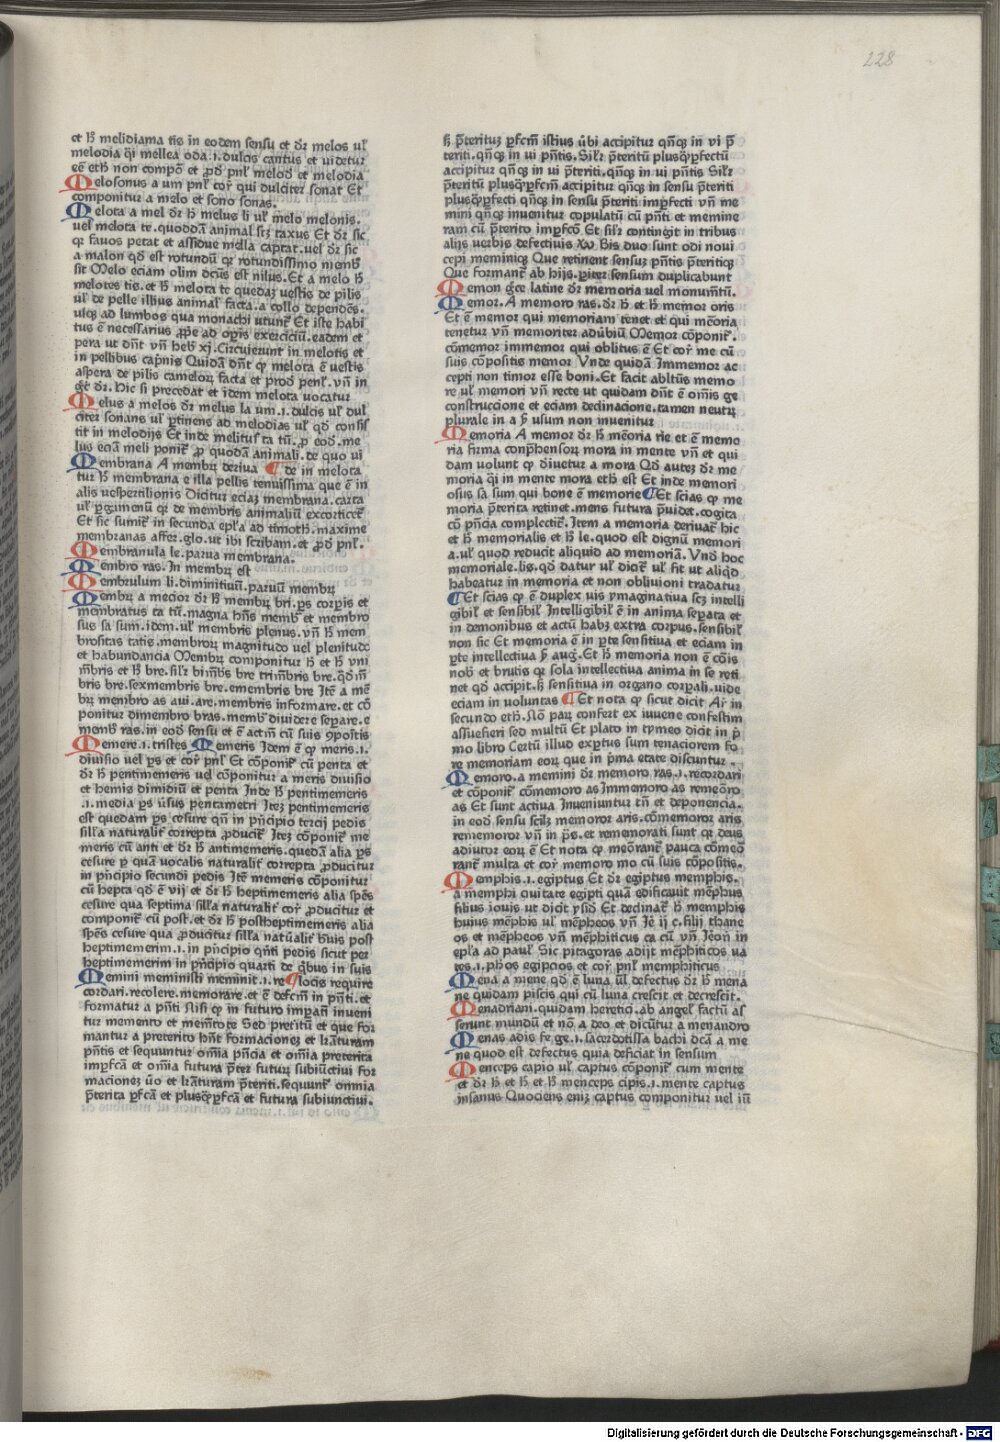 228
et hͦ melidiama tis in eodem sensu et dr̄ melos ul'
melodia q̄i mellea oda .i. dulcis cantus et uidetur
eē eth̄ non compoͦ et ꝓd' pnl' melod' et melodia
Melosonus a um pnl' cor̄ qui dulciter sonat Et
componitur a melo et sono sonas.
Melota a mel dr̄ hͦ melus li ul' melo melonis.
uel melota te. quoddā animal scꝫ taxus Et dr̄ sic
qr fauos petat et assidue mella captat. uel dr̄ sic
a malon qd̄ est rotundū qr rotundissimo memb'
sit Melo eciam olim dc̄us est nilus. Et a melo hͦ
melotes tis. et hͦ melota te quedaꝫ uestis de pilis
ul' de pelle illius animal' facta. a collo dependēs.
ulqꝫ ad lumbos qua monachi utunt̄ Et iste habi
tus ē necessarius ꝓpē ad op̄is exerciciū. eadem et
pera ut dn̄t vn̄ heb' xj. Circuierunt in melotis et
in pellibus cap̄nis Quidā dn̄t ꝙ melota ē uestis
aspera de pilis camelorꝫ facta et prod' penl'. vn̄ in
gͣc' dr̄. Hic si precedat et idem melota uocatur
Melus a melos dr̄ melus la um .i. dulcis ul' dul
citer sonans ul' ꝑtinens ad melodias ul' qd̄ consis
tit in melodijs Et inde melitus ta tū. ꝓ eod'. me
lius eciā meli ponit̄ ꝓ quodā animali. de quo ui
Membrana A membꝝ deriua ¶ de in melota
tur hͦ membrana e illa pellis tenuissima que ē in
alis uespertilionis Dicitur eciaꝫ membrana. carta
ul' ꝑgimenū qr de membris animaliū excorticet̄
Et sic sumit̄ in secunda ep̄la ad timoth̄. maxime
membranas affer. glo. ut ibi scribam. et ꝓd' pnl'.
Membranula le. parua membrana.
Membro ras. In membꝝ est
Membrulum li. diminitiuū. paruū membꝝ
Membꝝ a mecior dr̄ hͦ membꝝ bri. ꝑs corpis et
membratus ta tū. magna hn̄s memb' et membro
sus sa sum. idem. ul' membris plenus. vn̄ hͦ mem
brositas tatis. membroꝝ magnitudo uel plenitudo
et habundancia Membꝝ componitur hͦ et hͦ vni
m̄bris et hͦ bre. sil'r bimb̄s bre trimbris bre. q̄d'm̄
bris bre. sexmembris bre. emembris bre Itē a mē
bꝝ membro as aui. are. membris informare. et cō
ponitur dimembro bras. memb' diuidere separe. e
memb' ras. in eod' sensu et ē actm̄ cū suis ꝯpostis
Memere .i. tristes Memeris Idem ē ꝙ meris .i.
diuisio uel ꝑs et cor̄ pnl' Et cōponit̄ cū penta et
dr̄ hͦ pentimemeris uel cōponitur a meris diuisio
et hemis dimidiū et penta Inde hͦ pentimemeris
.i. media ꝑs ūsus pentametri Iteꝫ pentimemeris
est quedam ꝑs cesure qn̄ in pn̄cipio tercij pedis
sill'a naturalit̄ correpta ꝓducit̄ Iteꝫ cōponit̄ me
meris cū anti et dr̄ hͦ antimemeris. quedā alia ꝑs
cesure ꝑ quā uocalis naturalit̄ correpta ꝓducitur
in pn̄cipio secundi pedis Itē memeris cōponitur
cū hepta qd̄ ē vij et dr̄ hͦ heptimemeris alia spēs
cesure qua septima sill'a naturalit̄ cor̄ ꝓducitur et
componit̄ cū post. et dr̄ hͦ postheptimemeris alia
spēs cesure qua ꝓducitur sill'a nat̄ualit̄ b̄uis post
heptimemerim .i. in pn̄cipio qn̄ti pedis sicut per
heptimemerim in pn̄cipio quarti de qͥbus in suis
Memini meministi meminit .i. re ¶ locis require
cordari. recolere. memorare. et ē defcm̄ in pn̄ti. et
formatur a pn̄ti n̄isi ꝙ in futuro impan̄ inueni
tur memento et mem̄tote Sed pret̄itū et que for
mantur a preterito hn̄t formacioneꝫ et lr̄aturam
pn̄tis et sequuntur om̄ia pn̄cia et om̄ia preterita
imꝑfcā et om̄ia futura p̄ter futurꝫ subiuctiui for
macioneꝫ ūo et lr̄aturam p̄teriti. sequunt̄ omnia
p̄terita ꝑfcā et plusqꝫꝑfcā et futura subiunctiui.
hͦ p̄teritur ꝑfcm̄ istius ūbi accipitur qn̄qꝫ in vi p̄
teriti. qn̄qꝫ in ui pn̄tis. Sil'r p̄teritū plusqꝫꝑfectū
accipitur qn̄qꝫ in ui p̄teriti. qn̄qꝫ in ui pn̄tis Sil'r
p̄teritū plusqꝫꝑfcm̄ accipitur qn̄qꝫ in sensu p̄teriti
plusqꝫꝑfecti qn̄qꝫ in sensu p̄teriti imꝑfecti vn̄ me
mini qn̄qꝫ inuenitur copulatū cū pn̄ti et memine
ram cū p̄terito imꝑfcō Et sil'r contingit in tribus
alijs uerbis defectiuis Xꝰ Bis duo sunt odi noui
cepi meminiqꝫ Que retinent sensuꝫ pn̄tis p̄teritiqꝫ
Que formant̄ ab hijs. ꝑiter sensum duplicabunt
Memon gͣce latine dr̄ memoria uel monumētū.
Memor. A memoro ras. dr̄ hͦ et hͦ memor oris
Et ē memor qui memoriam tenet et qui mēoria
tenetur vn̄ memoriter adūbiū Memor cōponit̄.
cōmemor immemor qui oblitus ē Et cor̄ me cū
suis cōpositis memor Vnde quidā Immemor ac
cepti non timor esse boni. Et facit abltūs memo
re ul' memori vn̄ recte ut quidam dn̄t ē om̄is ge
construccione et eciam declinacione. tamen neutrꝫ
plurale in a ꝑ usum non inuenitur
Memoria A memor dr̄ hͦ mēoria rie et ē memo
ria firma conpͣhensoꝝ mora in mente vn̄ et qui
dam uolunt ꝙ diuetur a mora Qd̄ auteꝫ dr̄ me
moria q̄i in mente mora eth̄ est Et inde memori
osus sa sum qui bone ē memorie ¶ Et scias ꝙ me
moria p̄terita retinet. mens futura p̄uidet. cogita
cō pn̄cia complectit̄. Item a memoria deriuat̄ hic
et hͦ memorialis et hͦ le. quod est dignū memori
a. ul' quod reducit aliquid ad memoriā. Vnd' hoc
memoriale. lis. qd̄ datur ul' dicat̄ ul' fit ut aliqͥd
habeatur in memoria et non obliuioni tradatur
¶ Et scias ꝙ ē duplex uis ymaginatiua scꝫ intelli
gibil' et sensibil' Intelligibil' ē in anima sepata et
in demonibus et actū habꝫ extra corpus. sensibil'
non sic Et memoria ē in ꝑte sensitiua et eciam in
ꝑte intellectiua ẜm aug'. Et hͦ memoria non ē cōis
nob' et brutis qr sola intellectiua anima in se reti
net qd̄ accipit. hͦ sensitiua in organo corꝑali. uide
eciam in uoluntas ¶ Et nota ꝙ sicut dicit Ar̄ in
secundo eth̄. Nō parꝫ confert ex iuuene confestim
assuefieri sed multū Et plato in tymeo dicit in p̄
mo libro Certū illud exꝑtus sum tenaciorem fo
re memoriam eorꝫ que in p̄ma etate discuntur.
Memoro. a memini dr̄ memoro ras .i. recordari
et cōponit̄ cōmemoro as Immemoro as remeōro
as Et sunt actiua Inueniuntur tn̄ et deponencia.
in eod' sensu scilꝫ memoror aris. cōmemoror aris
rememoror vn̄ in pͣs. et rememorati sunt qr deus
adiutor eorꝫ ē Et nota ꝙ meōrant̄ pauca cōmeō
rant̄ multa et cor̄ memoro mo cū suis cōpositis.
Memphis .i. egiptus Et dr̄ egiptus memphis.
a memphi ciuitate egipti quā edificauit mēphus
filius iouis ut dicit ysid' Et declinat̄ hͦ memphis
huius mēphis ul' mēpheos vn̄ Ie' ij c. filij thane
os et mēpheos vn̄ mēphiticus ca cū vn̄ Ieon̄ in
ep̄la ad paul' Sic pitagoras adijt mēphiticos ua
tes .i. ph̄os egipcios et cor̄ pnl' memphiticus
Mena a mene qd̄ ē luna ul' defectus dr̄ hͦ mena
ne quidam piscis qui cū luna crescit et decrescit.
Menadriani. quidam heretici. ab angel' factū as
serunt mundū et nō a deo et dicūtur a menandro
Menas adis fe. ge .i. sacerdotissa bachi dc̄a a me
ne quod est defectus quia deficiat in sensum
Menceps capio ul' captus cōponit̄ cum mente
et dr̄ hͦ et hͦ et hͦ menceps cipis .i. mente captus
insanus Quociens eniꝫ captus componitur uel iū
Digitalisierung gefördert durch die Deutsche Forschungsgemeinschaft - DFG